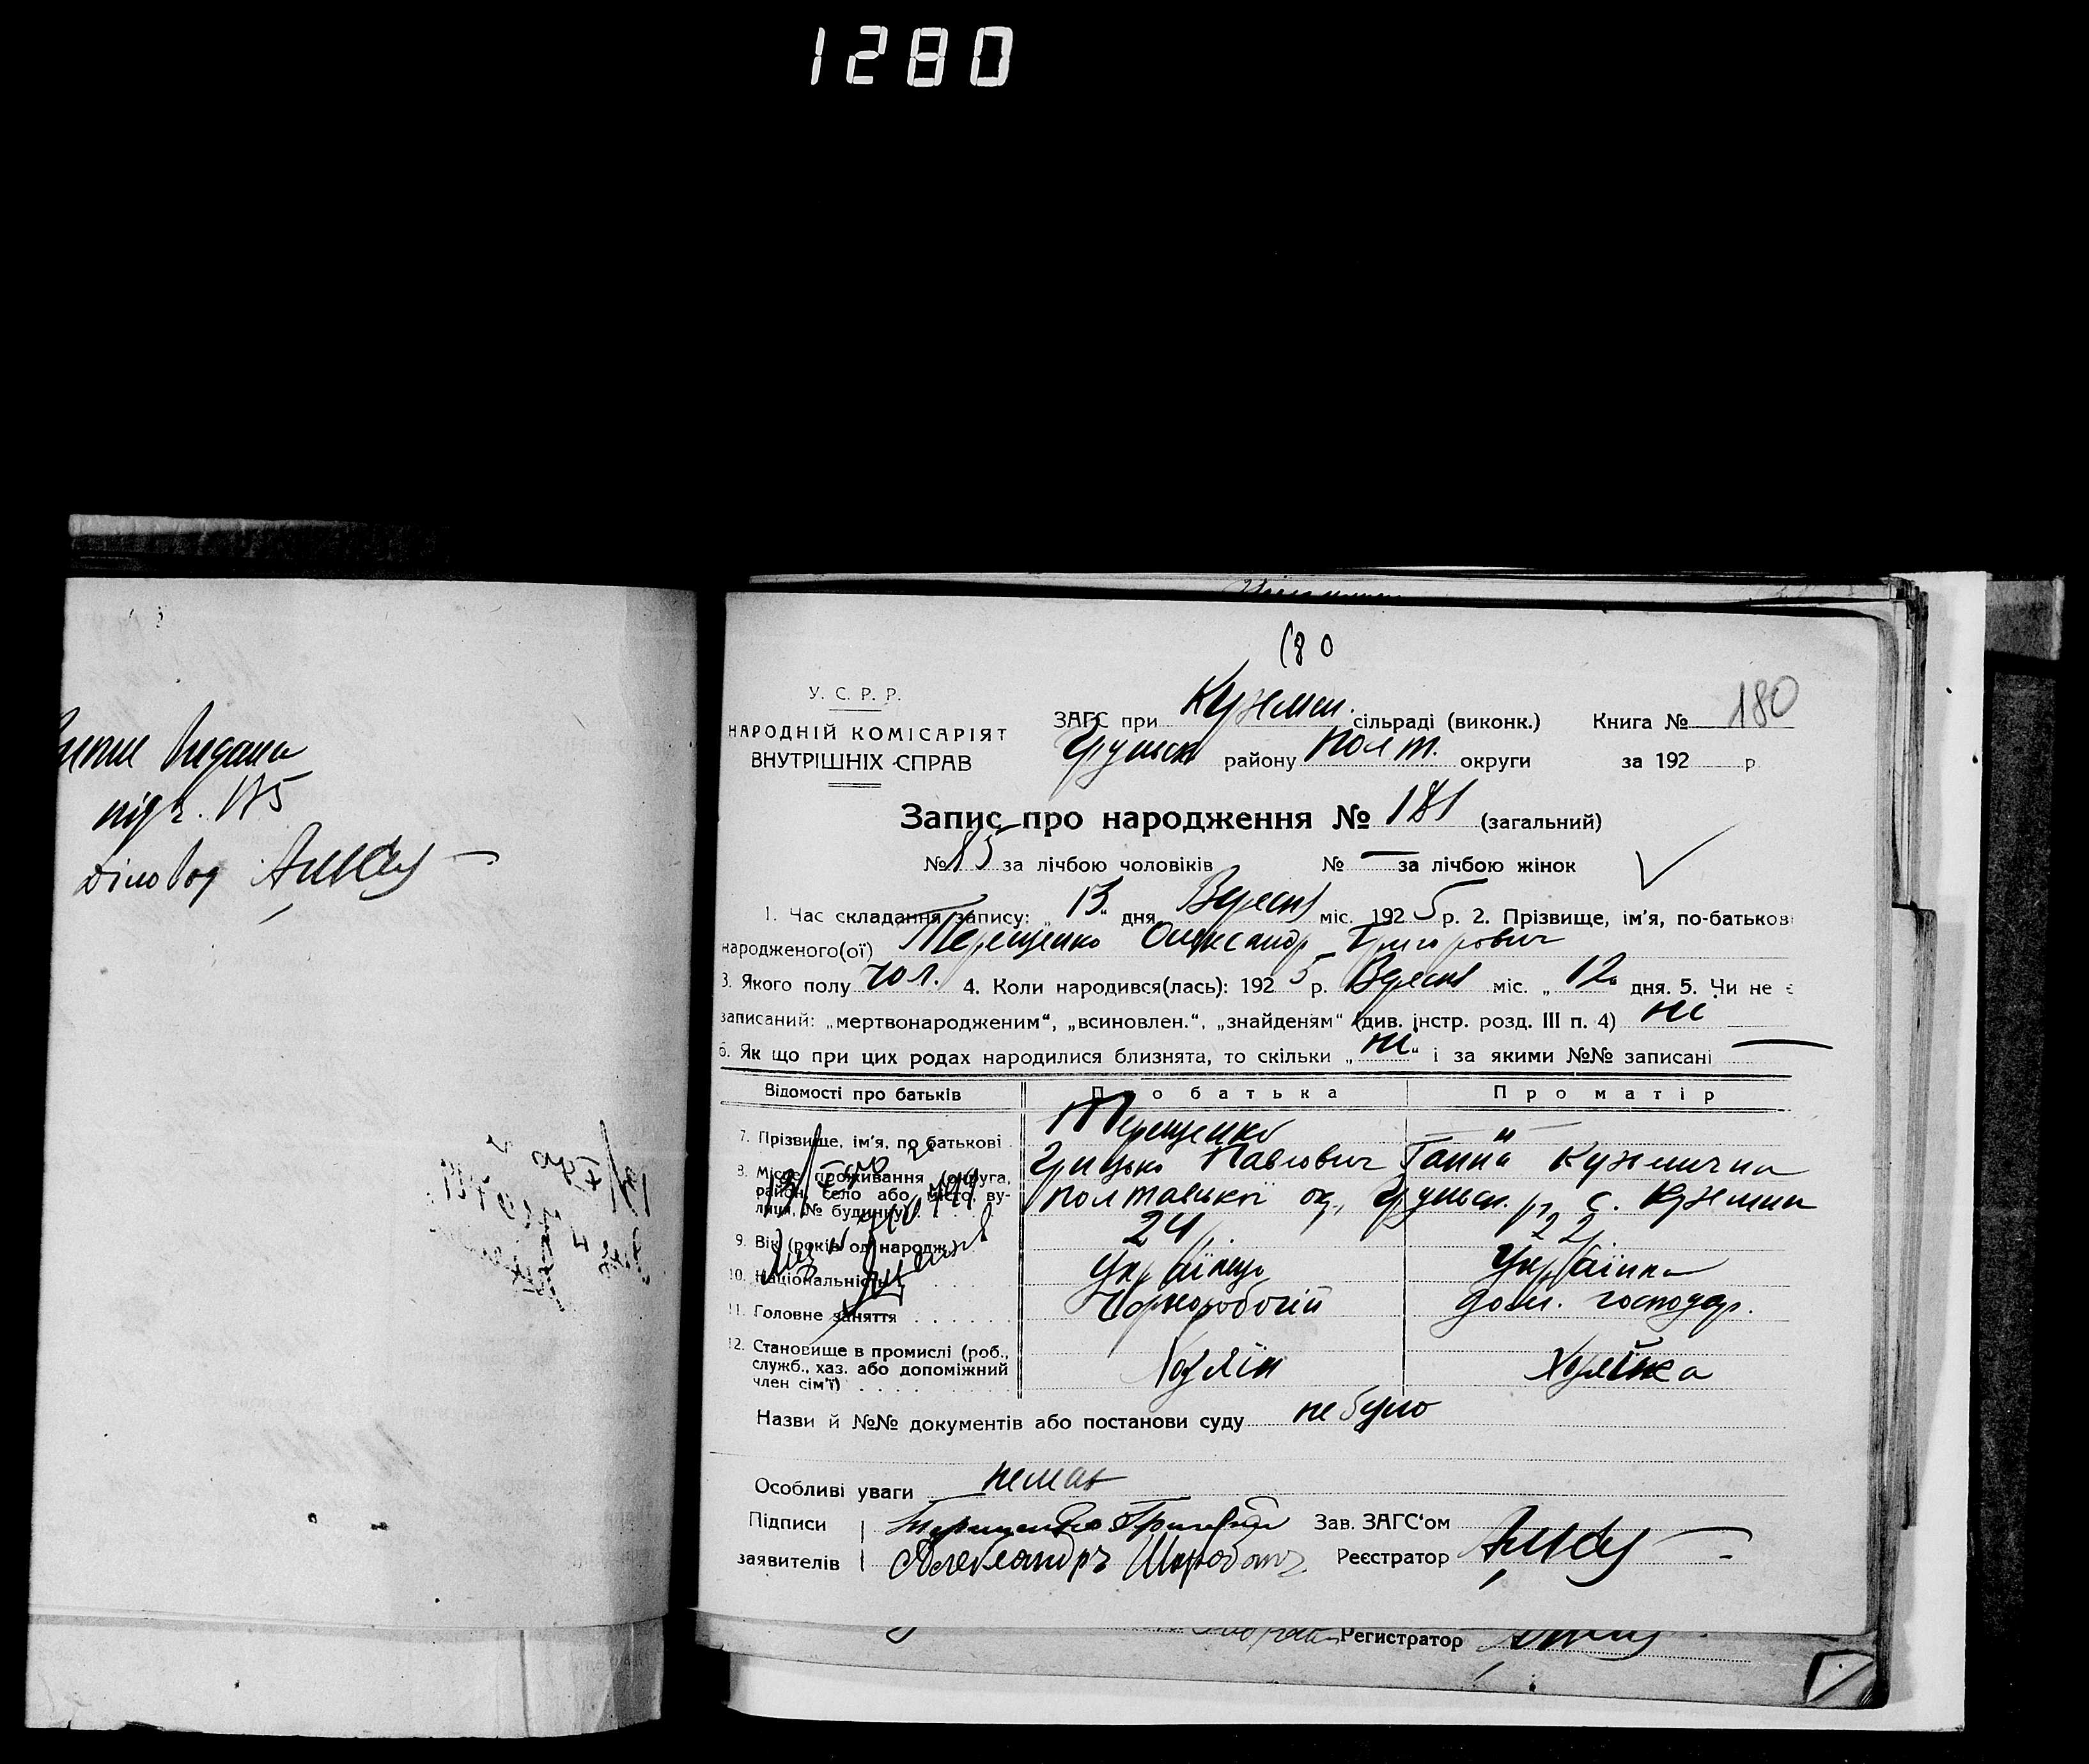 1280
180
У. С. Р. Р.
НАРОДНІЙ КОМІСАРІЯТ
ВНУТРІШНІХ СПРАВ
ЗАГС при Куземин. сільраді (виконк.) Книга № 180
Грунськ району Полт. округи за 192 р.
Запис про народження № 181 (загальний)
№ 85 за лічбою чоловіків № — за лічбою жінок
1. Час складання запису: „13“ дня Вересня міс. 1925 р. 2. Прізвище, ім'я, по-батькові
народженого(ої) Терещенко Олександр Григорович
3. Якого полу чол. 4. Коли народився(лась): 1925 р. Вересня міс. „12“ дня. 5. Чи не є
записаний: „мертвонародженим“, „всиновлен.“, „знайденям“ (див. інстр. розд. III п. 4) ні
6. Як що при цих родах народилися близнята, то скільки „ні“ і за якими №№ записані —
Відомості про батьків Про батька Про матір
7. Прізвище, ім'я, по батькові Терещенко — " —
Грицько Павлович Ганна Кузьмична
8. Місце проживання (округа, район, село або місто, вулиця, № будинку) Полтавської ок., Грунськ. р. с. Куземин
9. Вік (років од народж.) 24 22
10. Національність Українець Українка
11. Головне заняття Чорноробочій дом. господар.
12. Становище в промислі (роб., служб., хаз. або допоміжний член сім'ї) Хазяїн Хазяйка
Назви й №№ документів або постанови суду не було
Особливі уваги немає
Підписи Зав. ЗАГС'ом
заявителів Александръ Реєстратор
Регистратор
видана
175
Діловод